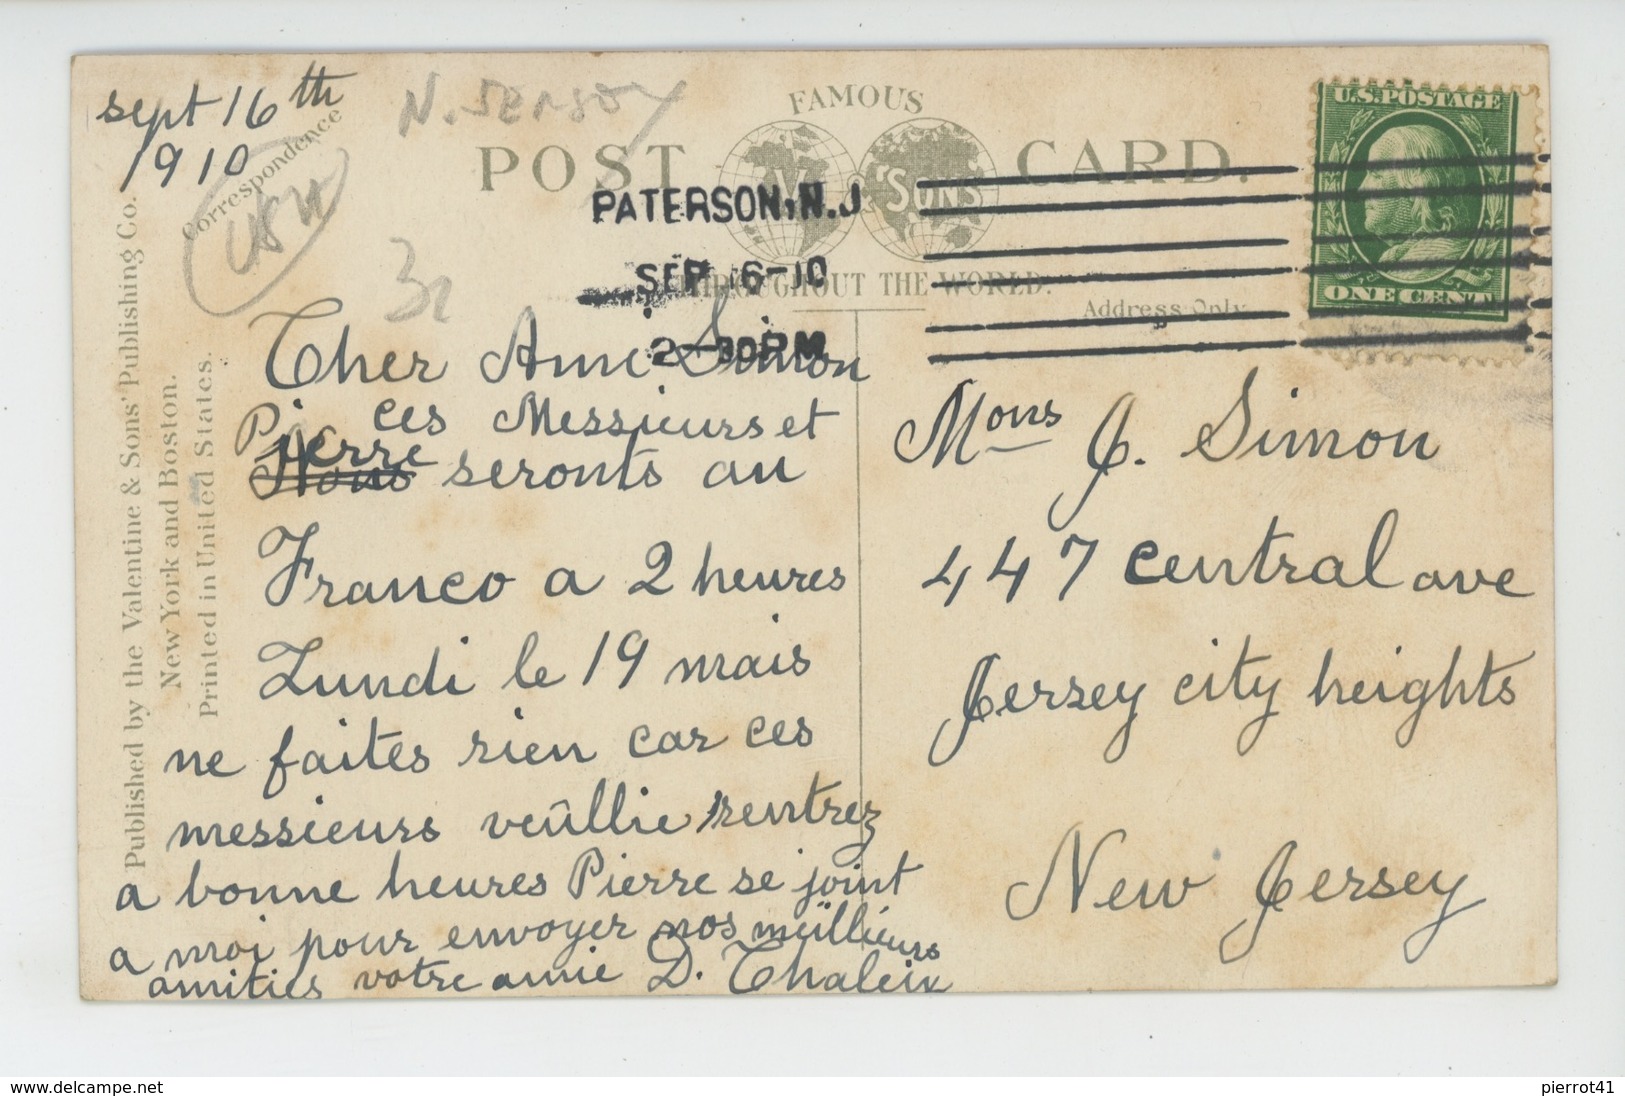 sept 16th
1910
N. Jersey
USA
Correspondence
FAMOUS
POST CARD.
& SONS
THROUGHOUT THE WORLD.
Address Only
PATERSON, N.J.
SEP 16-10
2-30PM
U.S. POSTAGE
ONE CENT
Published by the Valentine & Sons' Publishing Co.
New York and Boston.
Printed in United States.
Cher Ami Simon
ces Messieurs et
Pierre
Nous seronts au
Franco a 2 heures
Lundi le 19 mais
ne faites rien car ces
messieurs veûllie rentrez
a bonne heures Pierre se joint
a moi pour envoyer nos meïllieurs
amities votre amie D. Thaleix
Mons J. Simon
447 central ave
Jersey city heights
New Jersey
www.delcampe.net
pierrot41